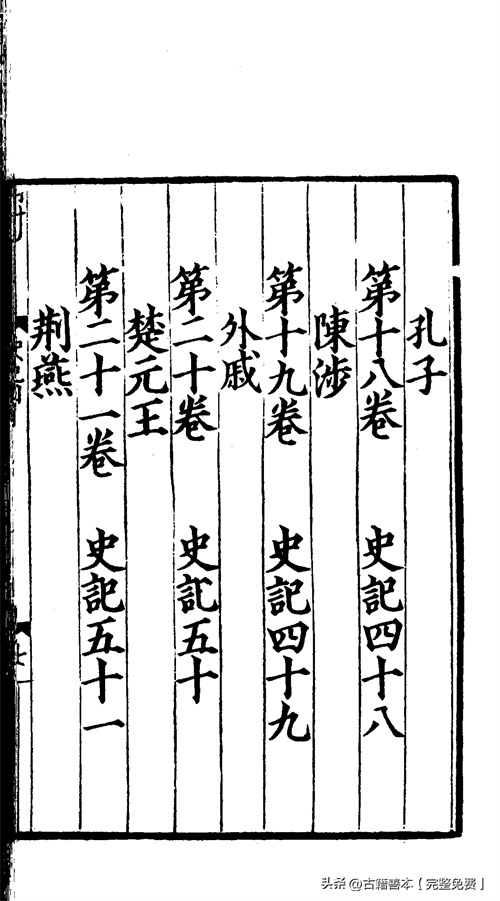 孔子
第十八卷 史記四十八
陳涉
第十九卷 史記四十九
外戚
第二十卷 史記五十
楚元王
第二十一卷 史記五十一
荆燕
七
头条 @古籍善本【完整免费】